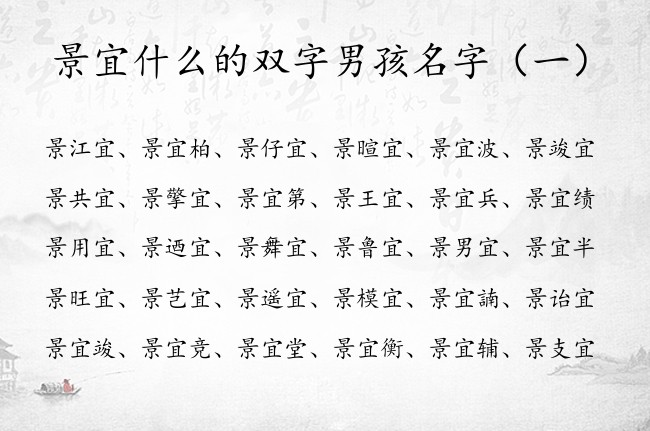 景宜什么的双字男孩名字（一）
景江宜、景宜柏、景仔宜、景暄宜、景宜波、景竣宜
景共宜、景擎宜、景宜第、景王宜、景宜兵、景宜绩
景用宜、景迺宜、景舞宜、景鲁宜、景男宜、景宜半
景旺宜、景艺宜、景遥宜、景模宜、景宜諵、景诒宜
景宜竣、景宜竞、景宜堂、景宜衡、景宜辅、景支宜